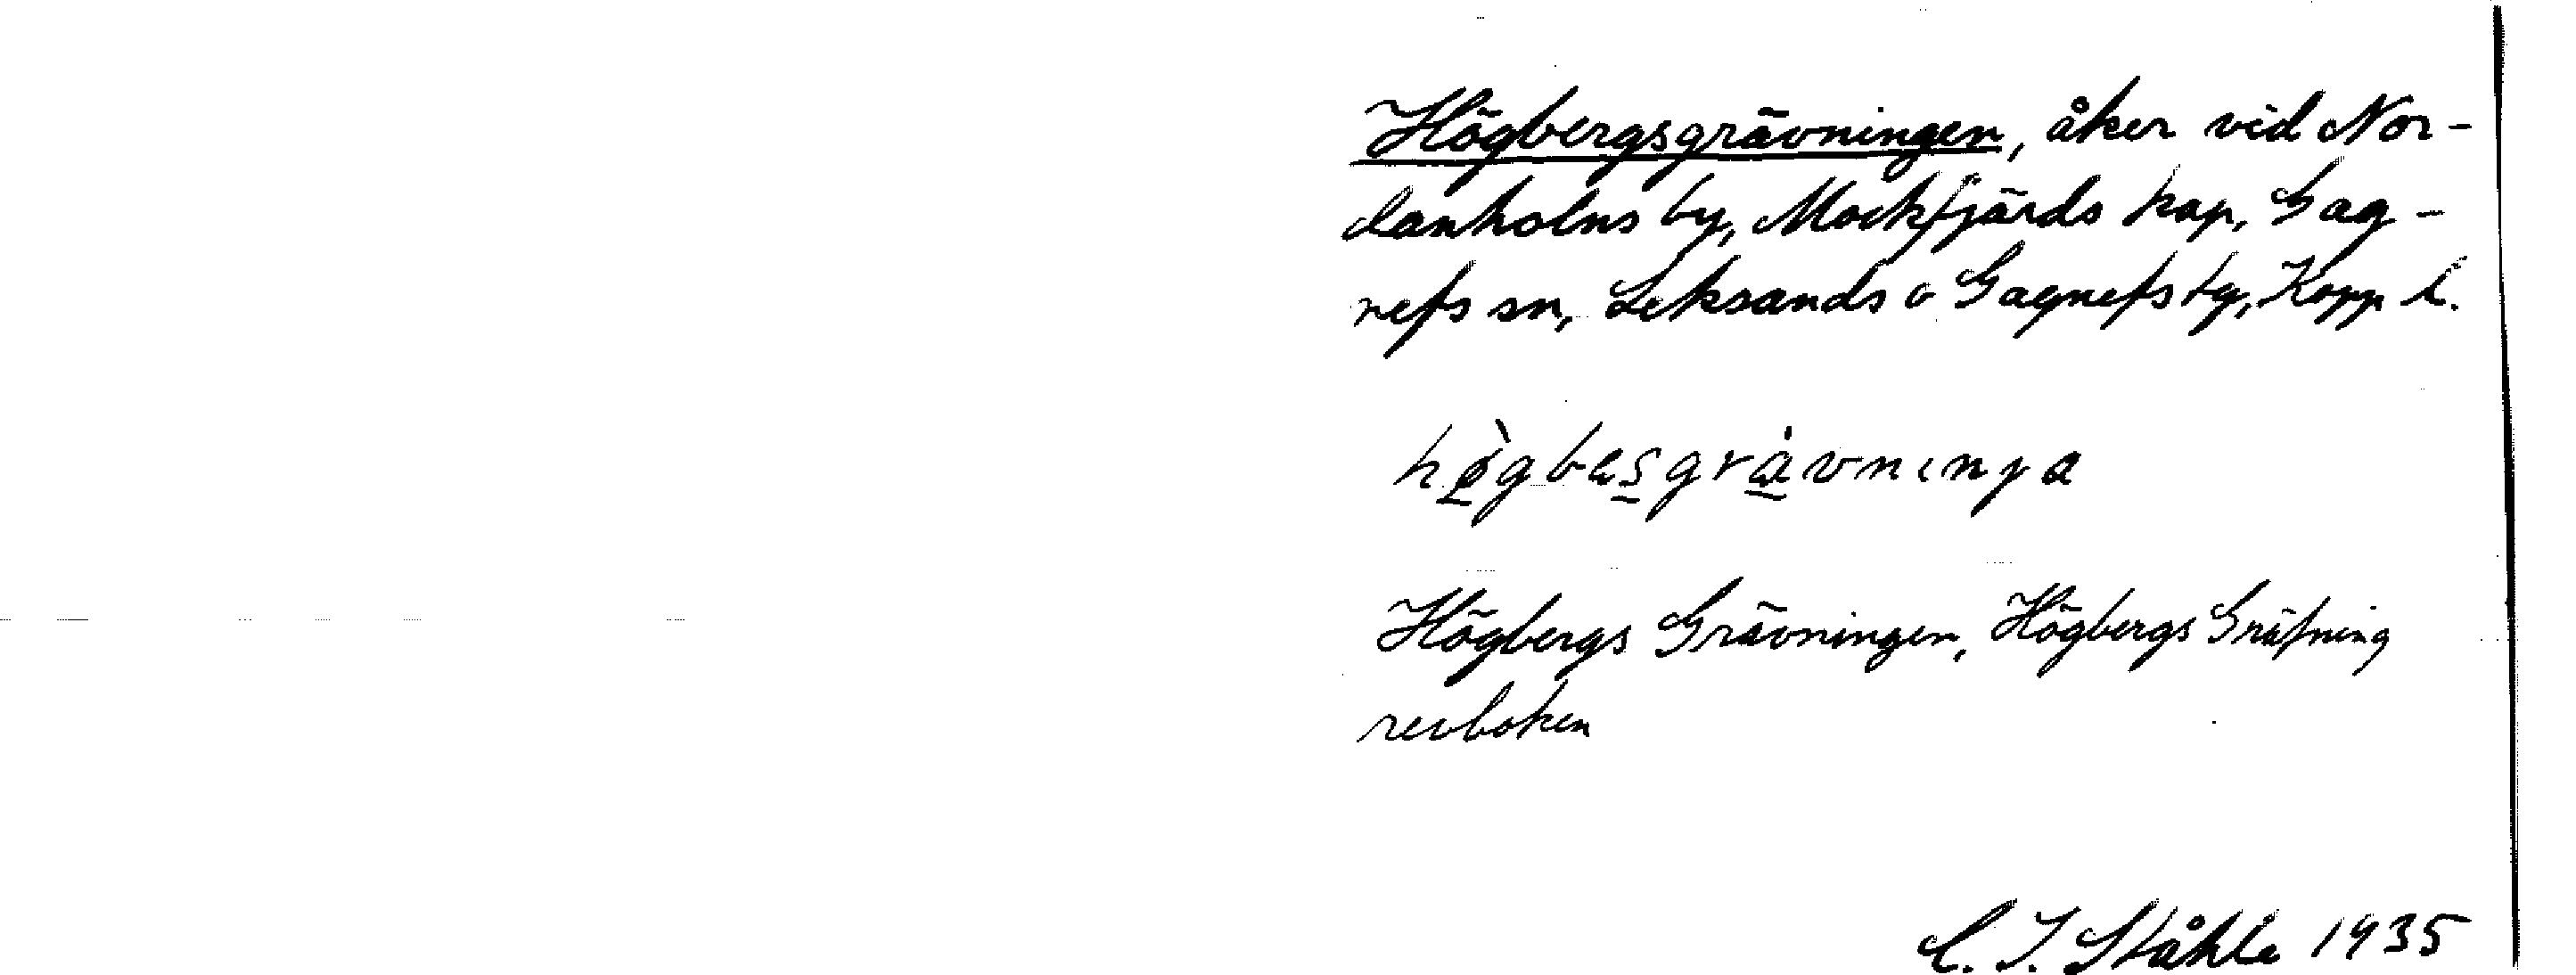 Högbergsgrävningen, åker vid Nor-
danholns by, Mockfjärds kap, Gag-
nefs sn, Leksands o Gagnefs tg, Kopp l.
hø̀gbæsgrævnɩnga
Högbergs Grävningen, Högbergs Gräfning
revboken
C. I. Ståhle 1935